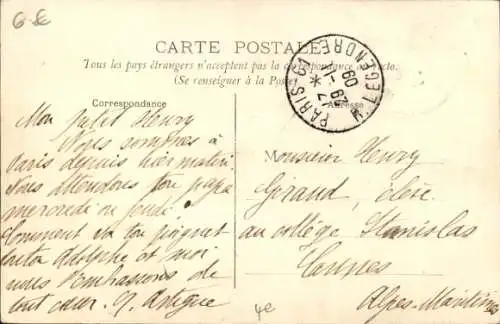 6-
CARTE POSTALE
Tous les pays étrangers n'acceptent pas la correspondance au recto.
(Se renseigner à la Poste)
PARIS-61 R. LEGENDRE
17 * 29 -1 09
Correspondance
Mon petit Henry
Nous sommes à
Paris depuis hier matin.
Nous attendons ton papa
mercredi ou jeudi.
Comment va ton poignet
Adolphe et moi
nous t'embrassons de
tout cœur. Artigue
Adresse
Monsieur Henry
Giraud, élève
au collège Stanislas
Cannes
Alpes-Maritimes
4e